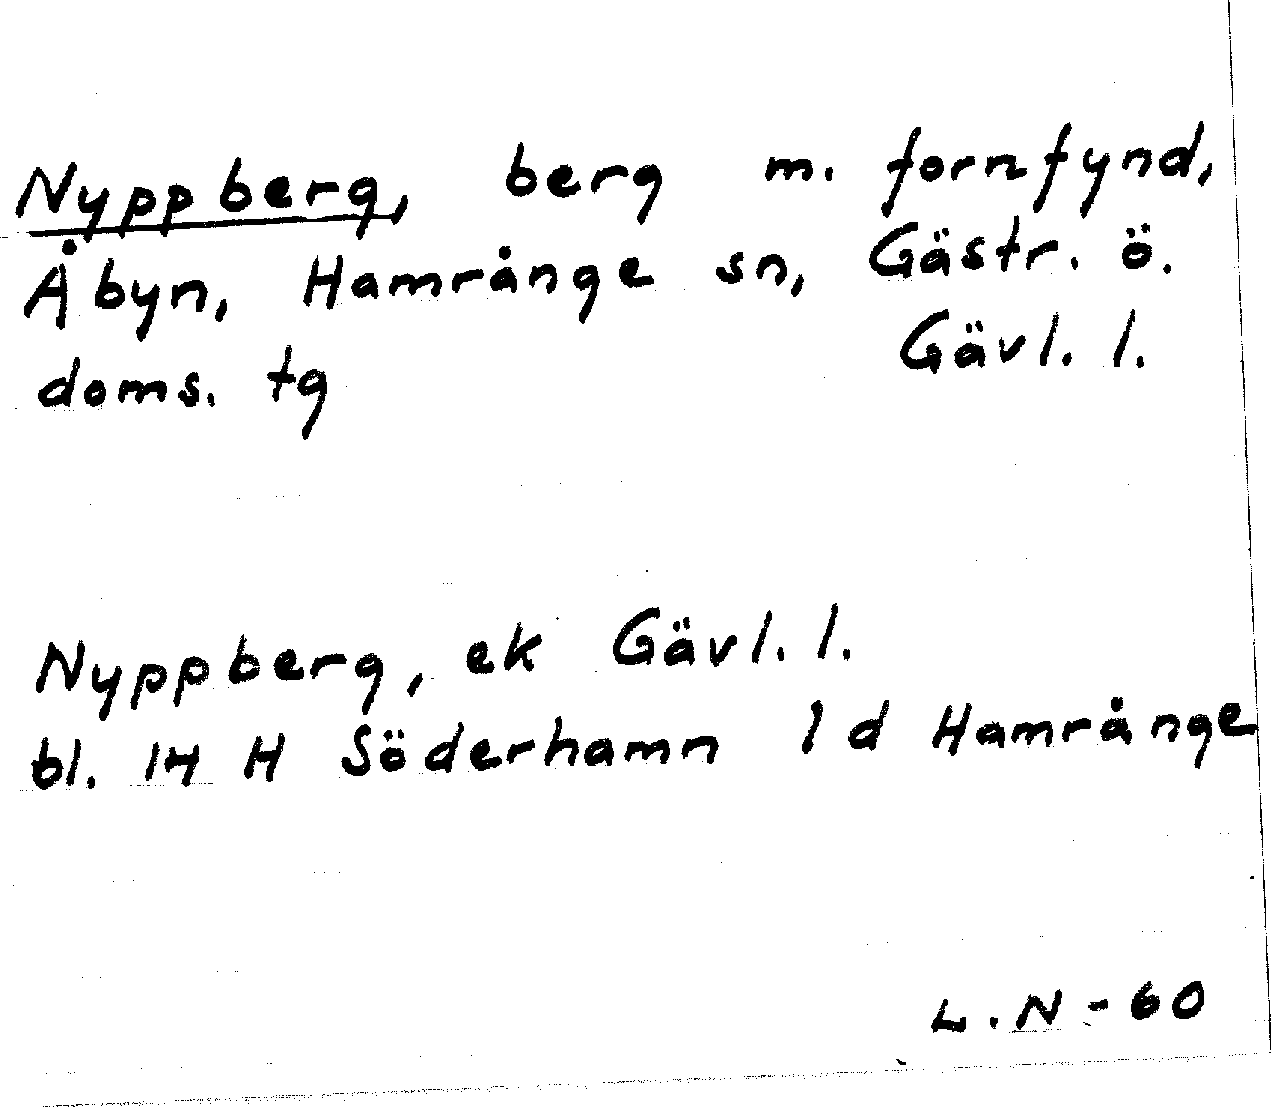 Nyppberg, berg m. fornfynd,
Åbyn, Hamrånge sn, Gästr. ö.
doms. tg Gävl. l.
Nyppberg, ek Gävl. l.
bl. 14 H Söderhamn 1 d Hamrånge
L.N-60